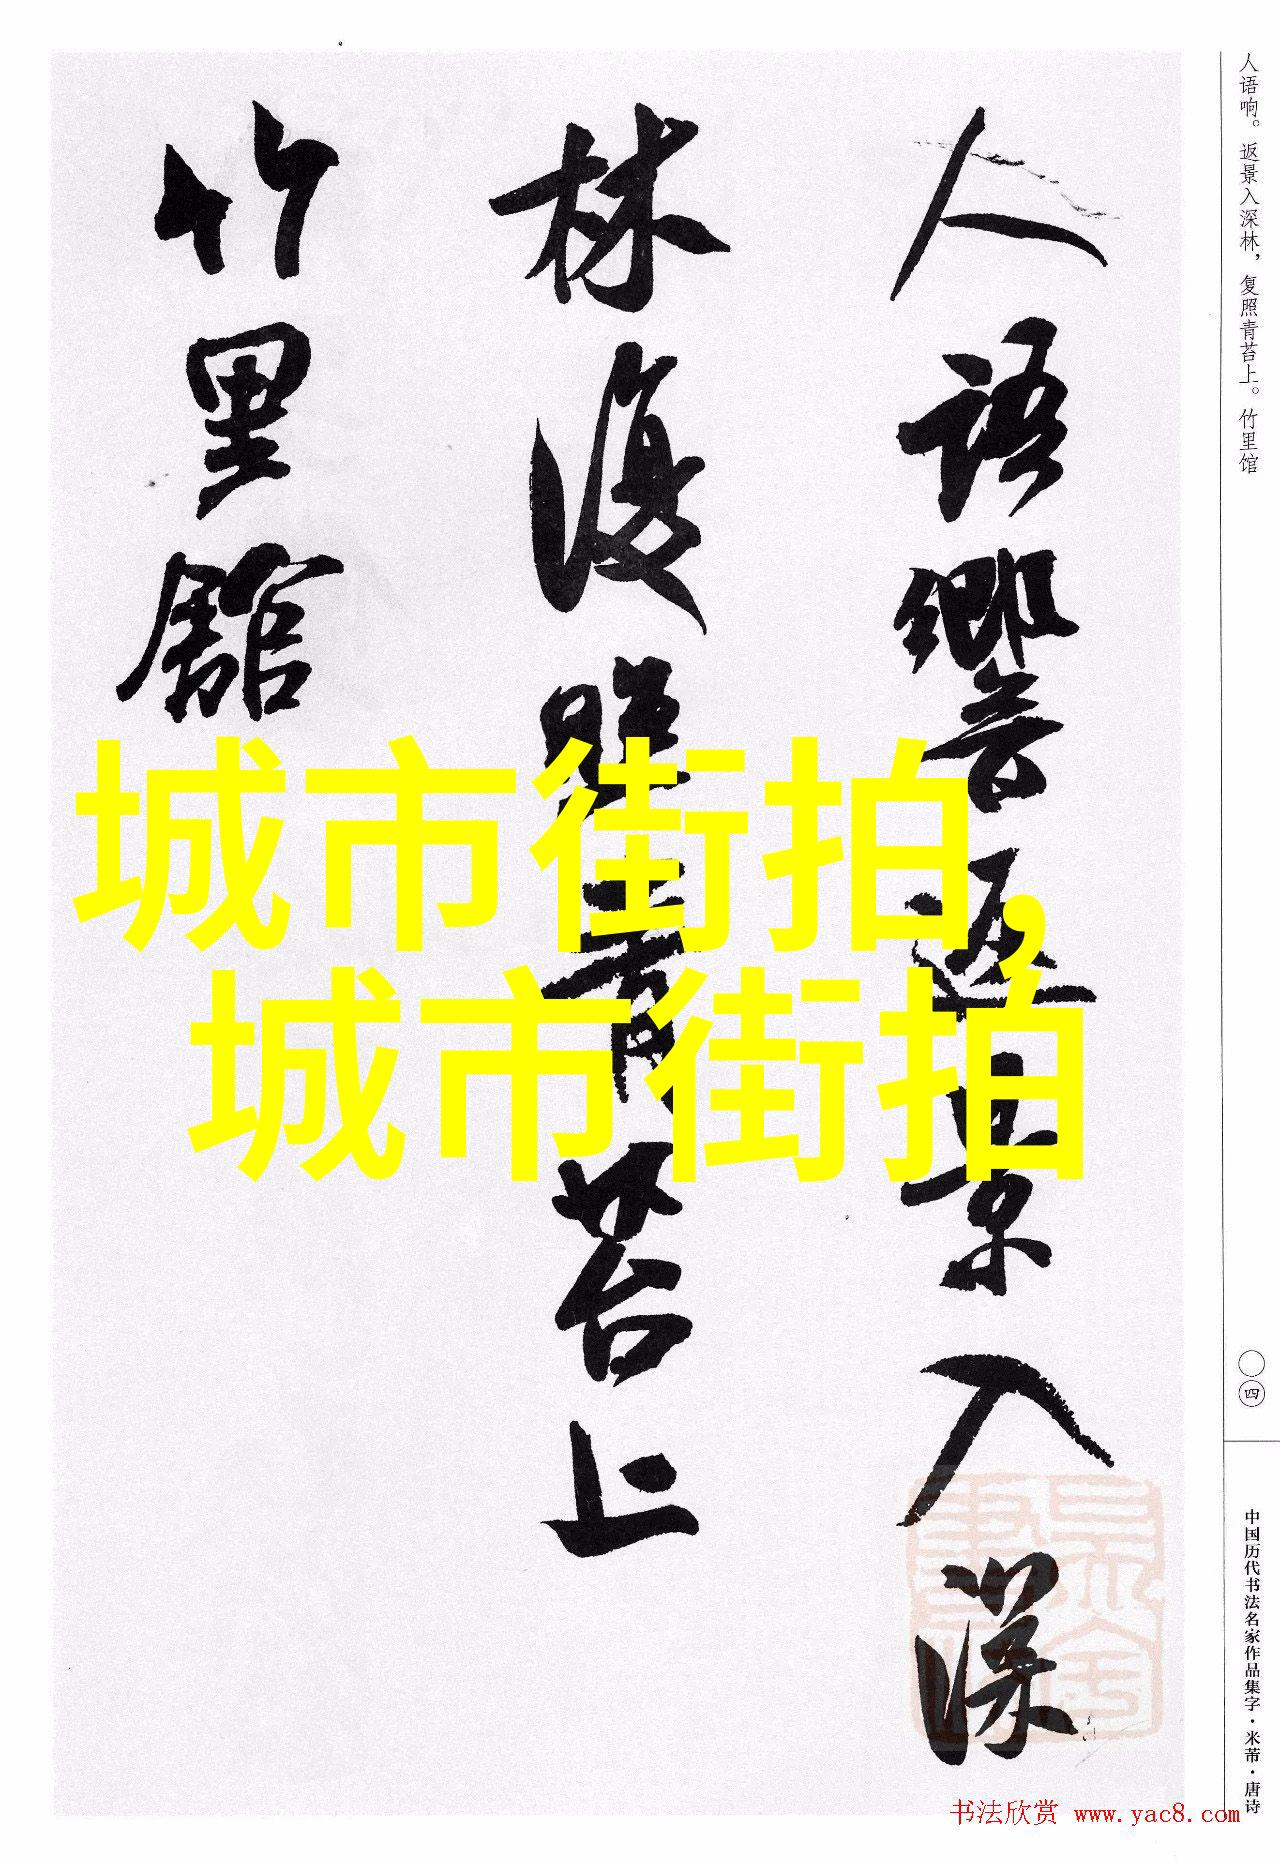 人语响。返景入深林，复照青苔上。竹里馆
人語響返景入深
林復照青苔上
竹里館
城市街拍,
城市街拍
〇四
中国历代书法名家作品集字·米芾·唐诗
书法欣赏 www.yac8.com